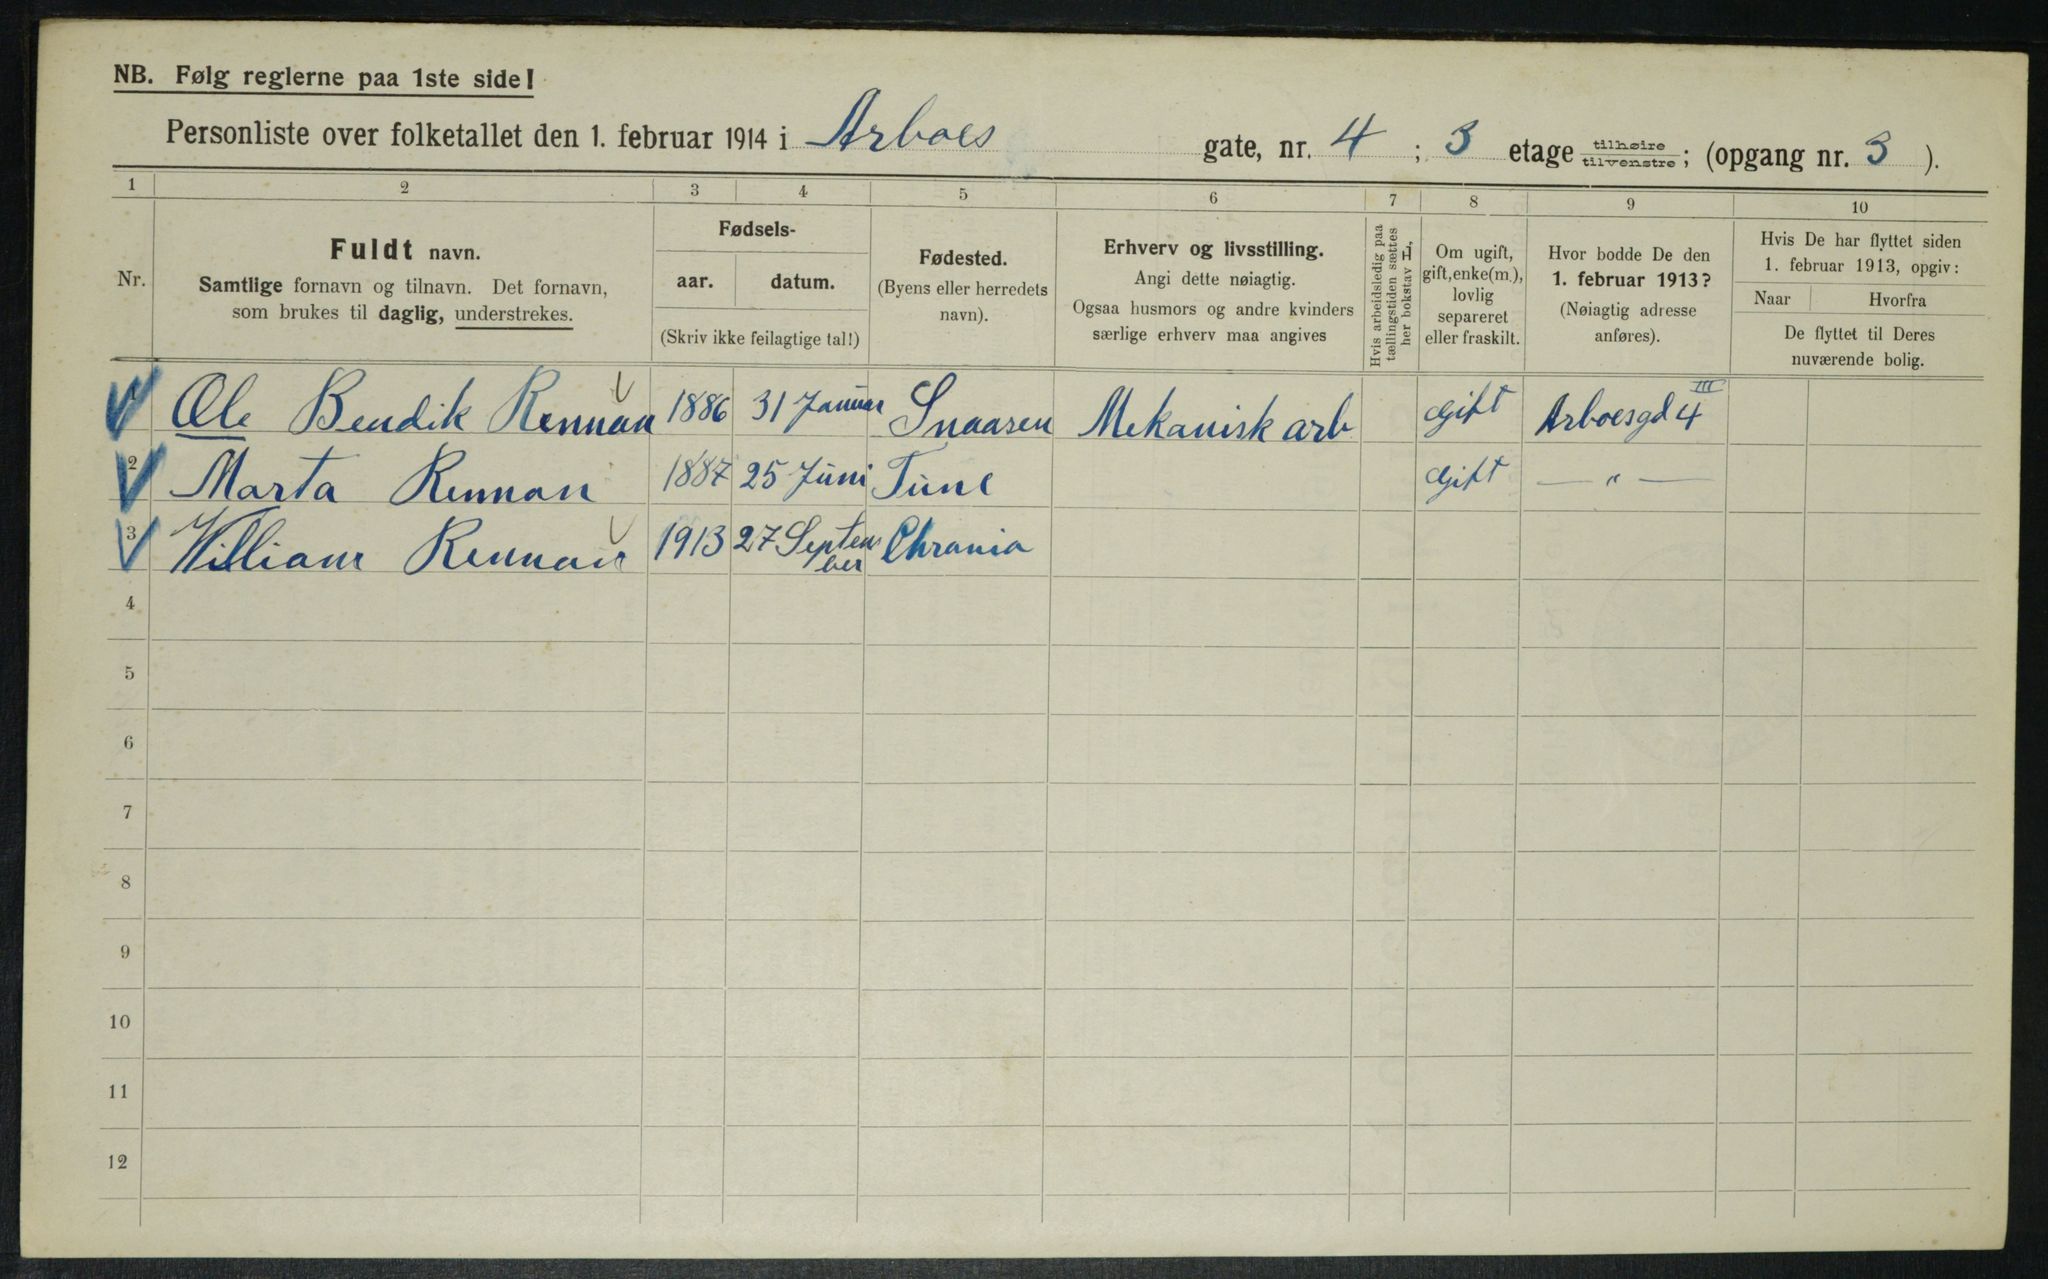 NB. Følg reglerne paa 1ste side!
Personliste over folketallet den 1. februar 1914 i Arboes gate, nr. 4 ; 3 etage tilhøire / tilvenstre ; (opgang nr. 3 ).
1 2 3 4 5 6 7 8 9 10
Nr.
Fuldt navn.
Samtlige fornavn og tilnavn. Det fornavn,
som brukes til daglig, understrekes.
Fødsels-
aar. datum.
(Skriv ikke feilagtige tal!)
Fødested.
(Byens eller herredets
navn).
Erhverv og livsstilling.
Angi dette nøiagtig.
Ogsaa husmors og andre kvinders
særlige erhverv maa angives
Hvis arbeidsledig paa
tællingstiden sættes
her bokstav L,
Om ugift,
gift, enke(m.),
lovlig
separeret
eller fraskilt.
Hvor bodde De den
1. februar 1913?
(Nøiagtig adresse
anføres).
Hvis De har flyttet siden
1. februar 1913, opgiv:
Naar Hvorfra
De flyttet til Deres
nuværende bolig.
1 Ole Bendik Rennan 1886 31 Januar Snaasen Mekanisk arb Gift Arboesgd 4 III
2 Marta Rennan 1887 25 Juni Tune Gift — " —
3 William Rennan 1913 27 Septem ber Chrania
4
5
6
7
8
9
10
11
12